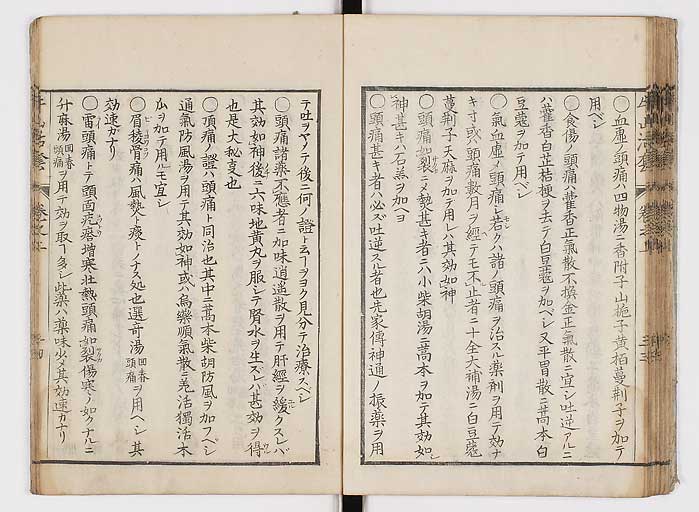 〇血虚ノ頭痛ハ四物湯ニ香附子山梔子黄栢蔓荆子ヲ加テ
用ベシ
〇食傷ノ頭痛ハ藿香正氣散不換金正氣散ニ宜シ吐逆アルニ
ハ藿香白芷桔梗ヲ去テ白豆蔲ヲ加ベシ又平胃散ニ藁本白
豆蔲ヲ加テ用ベシ
〇氣血虚ノ頭痛シ若クハ諸ノ頭痛ヲ治スル薬剤ヲ用テ効ナ
キ寸或ハ頭痛數月ヲ經テモ不止者ニ十全大補湯ニ白豆蔲
蔓荆子天麻ヲ加テ用レハ其効如神
〇頭痛如裂ニメ熱甚キ者ニハ小柴胡湯ニ藁本ヲ加テ其効如
神甚キハ石羔ヲ加ベヨ
〇頭痛甚キ者ハ必ズ吐逆スル者也先家傳神通ノ振薬ヲ用
テ吐ヲヤメテ後ニ何ノ證ト云ーヲヨク見分テ治療スベシ
〇頭痛諸薬不應者ニ加味逍遥散ヲ用テ肝經ヲ緩クスレバ
其効如神後ニ六味地黄丸ヲ服シテ腎水ヲ生ズレバ其効ヲ得
也是大秘叓也
〇項痛ノ證ハ頭痛ト同治也其中ニ藁本柴胡防風ヲ加フベシ
通氣防風湯ヲ用テ其効如神或ハ烏藥順氣散ニ羗活獨活木
瓜ヲ加テ用ルモ宜シ
〇眉稜骨痛ハ風熱ト痰トノナス処也選奇湯回春頭痛ヲ用ベシ其
効速カナリ
〇雷頭痛トテ頭面疙瘩増寒壯熱頭痛如裂傷寒ノ如クナルニ
升麻湯回春頭痛ヲ用テ効ヲ取ー多シ此薬ハ薬味少メ其効速カナリ